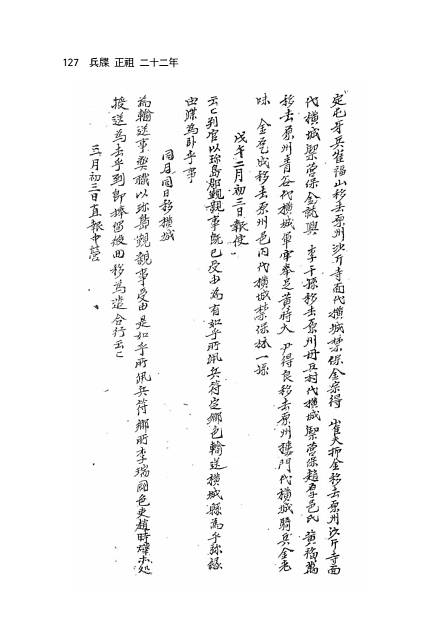 127 兵牒 正祖 二十二年
定屯牙兵崔福山移去原州沙斤寺面代橫城禁保金宗得 崔夫押金移去原州沙斤寺面
代橫城禦營保金就興 李千孫移去原州 村代橫城禦營保趙 邑氏 黃福萬
移去原州青谷代橫城軍牢奉足黃時大 尹得良移去原州 門代橫城騎兵金老
味 金 成移去原州邑內代橫城禁保林一孫
戊午二月初三日報使
云云判官以珍島郡覲親事既已受由為有如乎所佩兵符定鄉色輸送橫城縣為乎 緣
由牒為臥乎事
同月同日移橫城
為輸送事弊職以珍島覲親事受由是如乎所佩兵符鄉所李瑞國色吏趙時 處
授送為去乎到即捧留後回移為遣合行云云
三月初三日直報中營